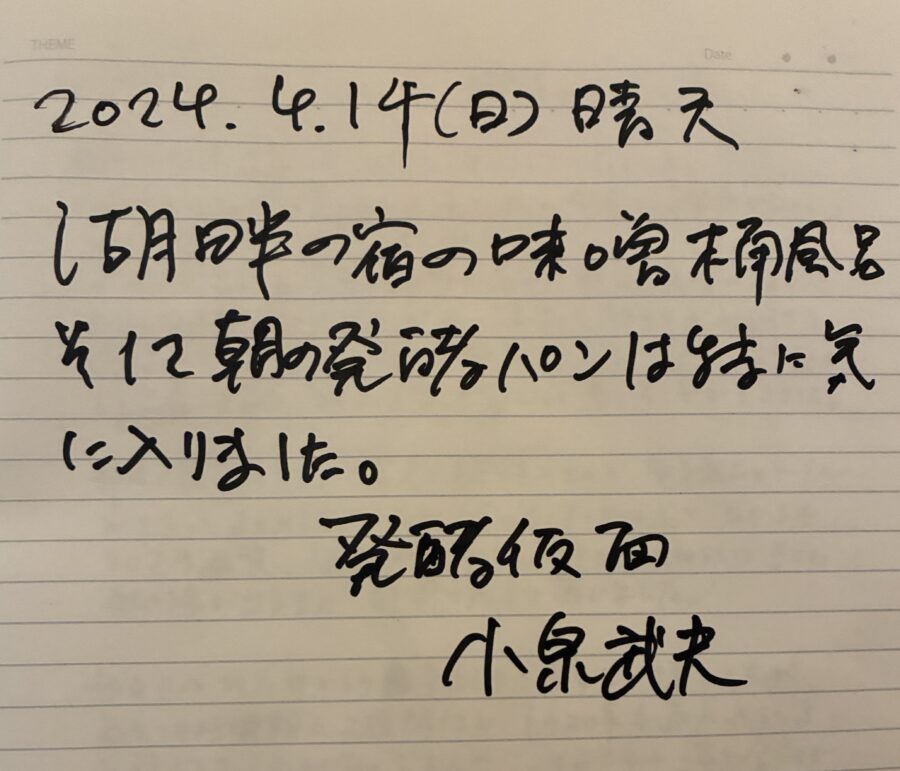 THEME
Date
2024.4.14(日)晴天
湖畔の宿の味噌桶風呂
そして朝の発酵パンは特に気
に入りました。
発酵仮面
小泉武夫